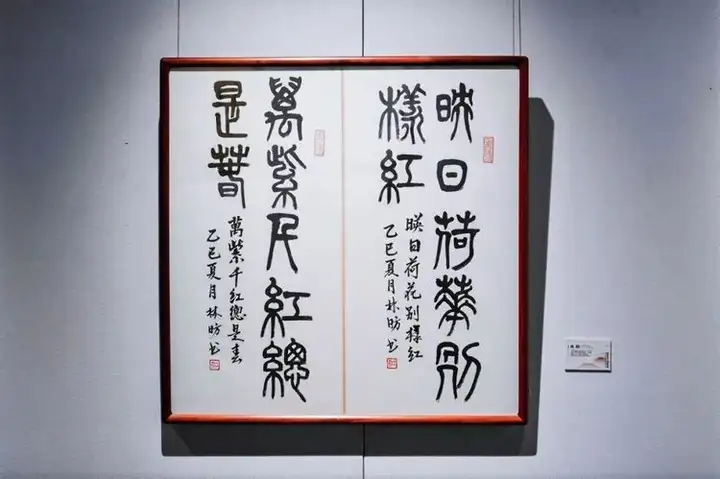 映日荷華別
樣紅
暎日荷花别樣紅
乙巳夏月林昉书
萬紫千紅總
是春
萬紫千紅總是春
乙巳夏月林昉书